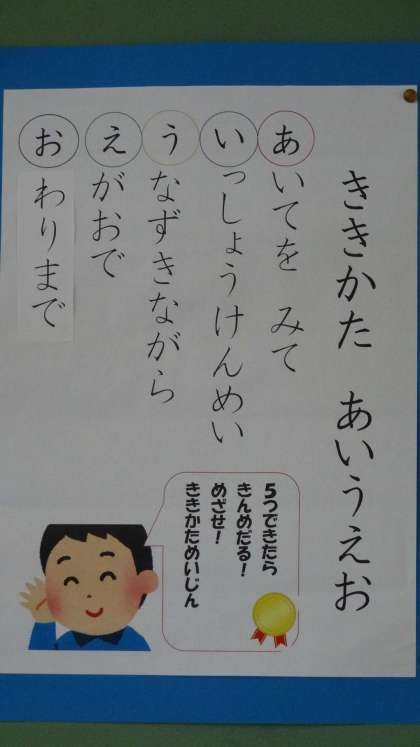 ききかた　あいうえお
あいてを　みて
いっしょうけんめい
うなずきながら
えがおで
おわりまで
5つできたら
きんめだる！
めざせ！
ききかためいじん